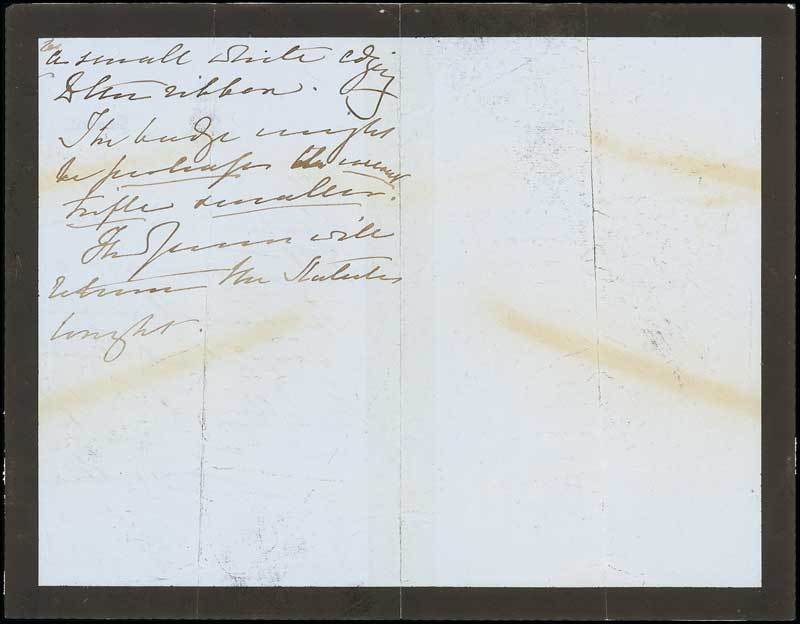 a small white edging
to the ribbon.
The badge might
be perhaps the merest
trifle smaller.
The Queen will
return the Statutes
tonight.